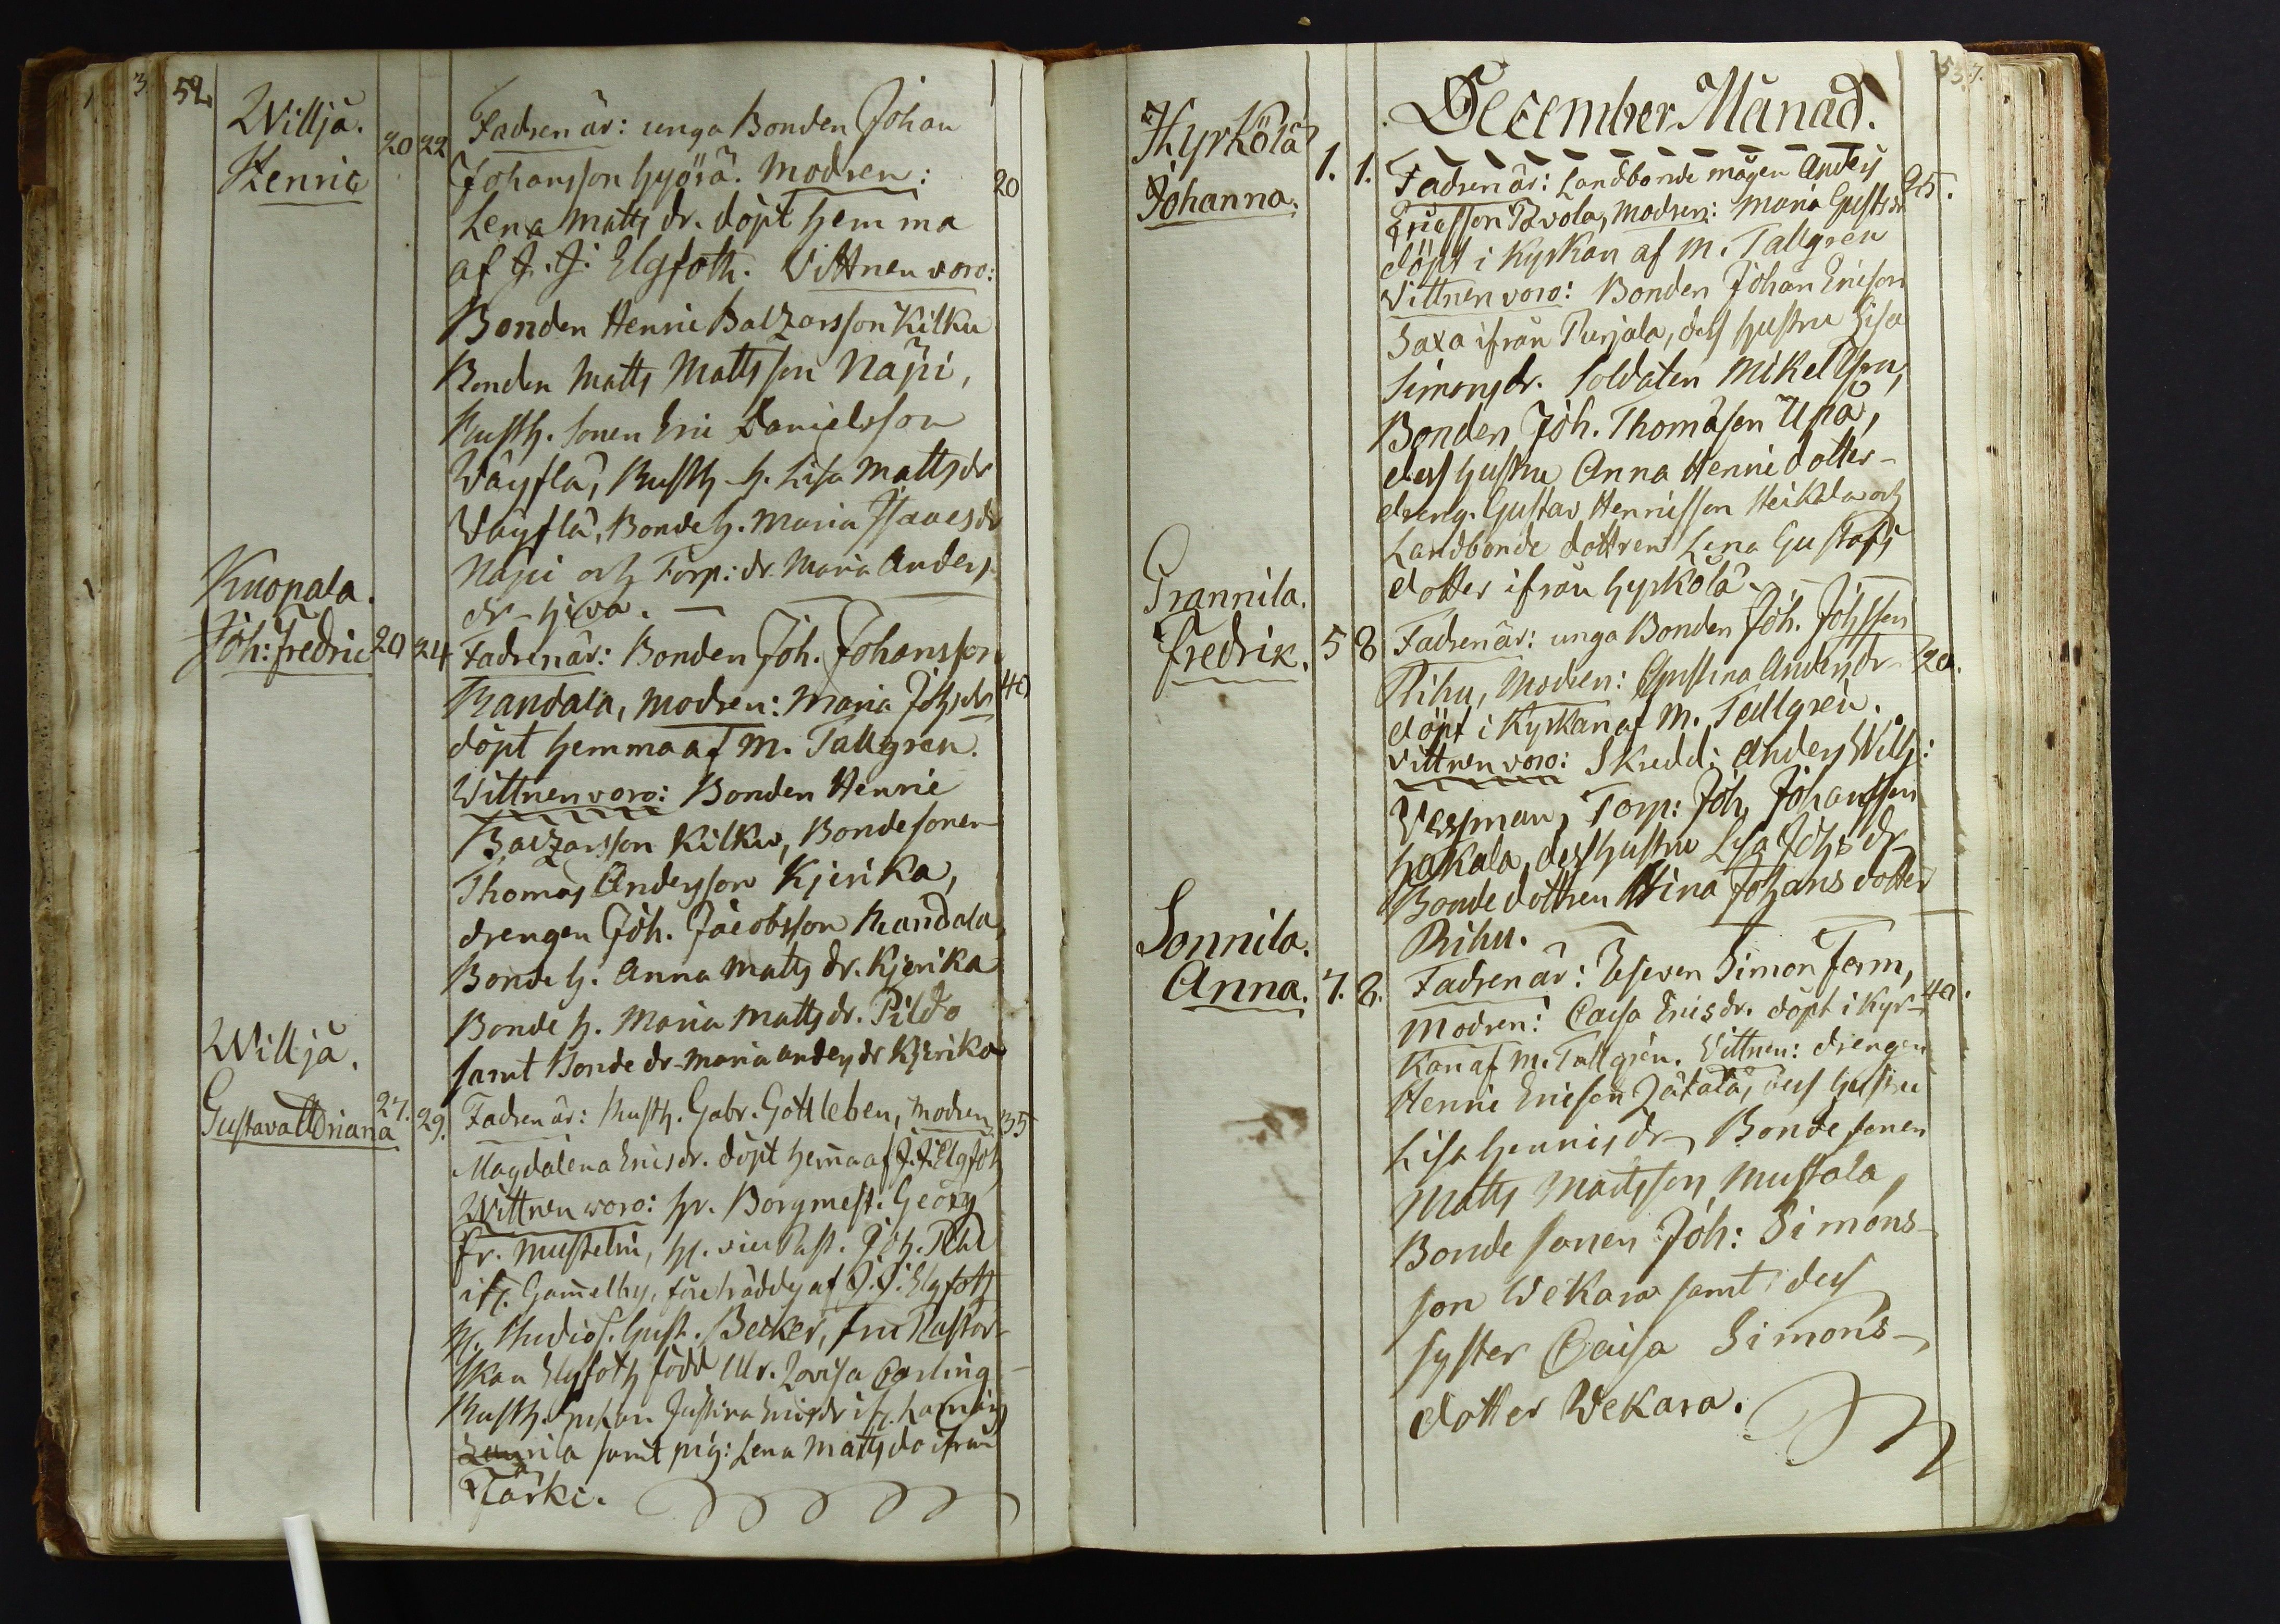 52.
Willjä.
Henric
20 22
Fadren är: unga Bonden Johan
Johansson hyörä. Modren:
20
Lena Matts dr. döpt hemma
af J. J. Elgfoth. Vittnen voro:
Bonden Henric Balzarsson Kilku
Bonden Matts Mattsson Näpi,
Rusth. sonen Eric Danielsson
Wäyflä, Rusth. h. Lisa Matts dr
Wäyflä, Bonde h. Maria Isaacs dr
Näpi och Torp: dr. Maria Anders
dr
Knopala.
Joh: Fredric
20 24
Fadren är: Bonden Joh. Johansson
Randala, Modren: Maria Johs dr
40
döpt hemma af M. Tallgren.
Vittnen voro: Bonden Henric
Balzarsson Kilku, Bonde sonen
Thomas Andersson Kjerika,
drengen Joh. Jacobsson Randala,
Bonde h. Anna Matts dr. Kjerika
Bonde h. Maria Matts dr. Pildo
samt Bonde dr. Maria Anders dr Kjerika
Willjä.
Gustava Adriana
27. 29.
Fadren är: Rusth. Gabr. Gottleben, Modren
35
Magdalena Erics dr. döpt hemma af J. J. Elgfoth
Wittnen woro: hr. Borgmest. Georg
Fr. Mustelin, hr. vice Past. Joh.
ifr. Gammelby, företrädde af J. J. Elgfoth
hr. Studios. Gust. Becker, fru Pastor-
skan Elgfoth född Ulr. Lovisa Carling
Rusth. Enkan Justina Erics dr ifr.
samt pig: Lena Matts dr ifrån
Tärki.
53.
December Månad.
Hyrkölä
Johanna.
1. 1.
Fadren är: Landbonde mågen Anders
25.
Ericsson Pavola, Modren: Maria Gusts dr
döpt i Kyrkan af M. Tallgren
Vittnen voro: Bonden Johan Ericson
Saxa ifrån Purjala, dess hustru Lisa
Simons dr. Soldaten Mikel
Bonden Joh. Thomasson Upa,
dess hustru Anna Henric dotter
dreng. Gustav Henricsson Heikola och
Landbonde dottren Lena Gustafs
dotter ifrån hyrkölä.
Prannila.
Fredrik.
5 8
Fadren är: unga Bonden Joh. Johsson
20.
Rihu, Modren: Justina Anders dr
döpt i Kyrkan af M. Tallgren.
Vittnen voro: Skredd: Anders Wilh:
Vessman, Torp: Joh. Johansson
hakala, dess hustru Lisa Johs dr
Bonde dottren Stina Johans dotter
Rihu.
Sonnila.
Anna.
7. 8.
Fadren är: Simon Form,
40.
Modren: Caisa Erics dr. döpt i Kyr-
kan af M. Tallgren. Vittnen: drengen
Henric Ericson Jakala, dess hustru
Lisa Henrics dr, Bonde sonen
Matts Mattsson Mustala,
Bonde sonen Joh: Simons-
son Wekara samt dess
syster Caisa Simons-
dotter Wekara.